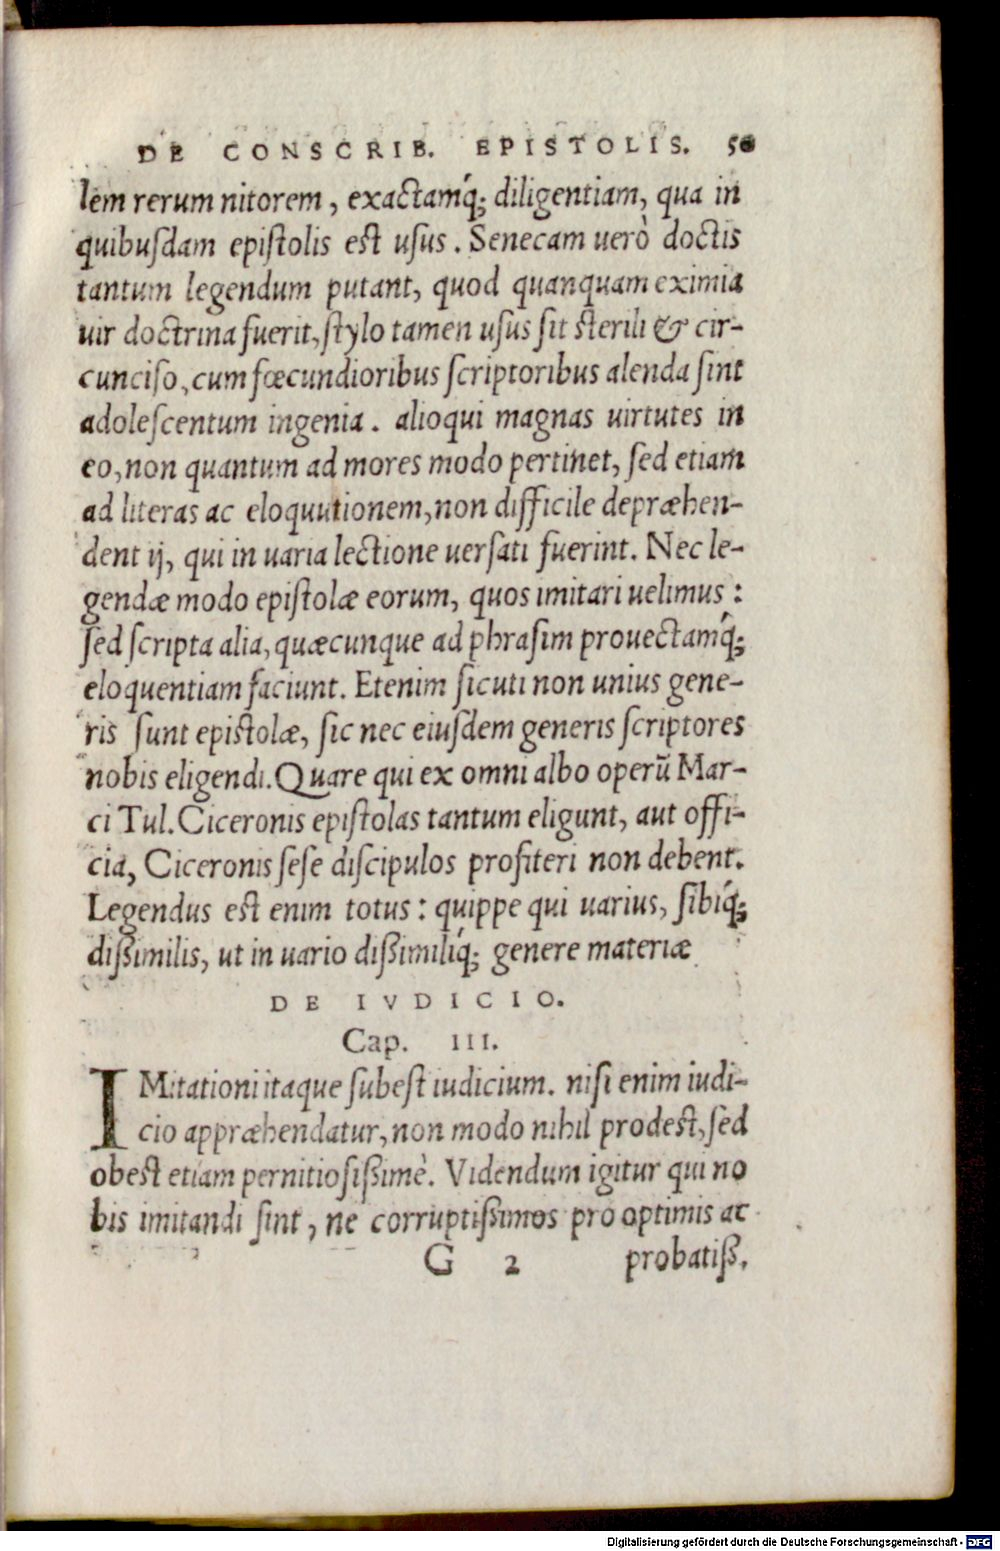 DE CONSCRIB. EPISTOLIS. 50
lem rerum nitorem, exactamq́; diligentiam, qua in
quibuſdam epiſtolis eſt uſus. Senecam uerò doctis
tantum legendum putant, quod quanquam eximia
uir doctrina fuerit, ſtylo tamen uſus ſit ſterili & cir-
cunciſo, cum fœcundioribus ſcriptoribus alenda ſint
adoleſcentum ingenia. alioqui magnas uirtutes in
eo, non quantum ad mores modo pertinet, ſed etiam
ad literas ac eloquutionem, non difficile depræhen-
dent ij, qui in uaria lectione uerſati fuerint. Nec le-
gendæ modo epiſtolæ eorum, quos imitari uelimus:
ſed ſcripta alia, quæcunque ad phraſim prouectamq́;
eloquentiam faciunt. Etenim ſicuti non unius gene-
ris ſunt epiſtolæ, ſic nec eiuſdem generis ſcriptores
nobis eligendi. Quare qui ex omni albo operũ Mar-
ci Tul. Ciceronis epiſtolas tantum eligunt, aut offi-
cia, Ciceronis ſeſe diſcipulos profiteri non debent.
Legendus eſt enim totus: quippe qui uarius, ſibiq́;
dißimilis, ut in uario dißimiliq́; genere materiæ
DE IVDICIO.
Cap. III.
IMitationi itaque ſubeſt iudicium. niſi enim iudi-
cio appræhendatur, non modo nihil prodeſt, ſed
obeſt etiam pernitioſißimè. Videndum igitur qui no
bis imitandi ſint, ne corruptißimos pro optimis ac
G 2 probatiß.
Digitalisierung gefördert durch die Deutsche Forschungsgemeinschaft - DFG